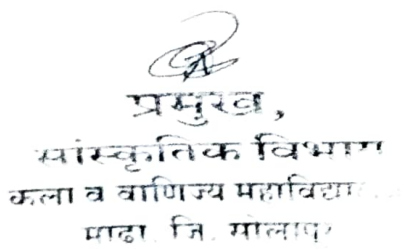 प्रमुख,
सांस्कृतिक विभाग
कला व वाणिज्य
माढा. जि. सोलापूर